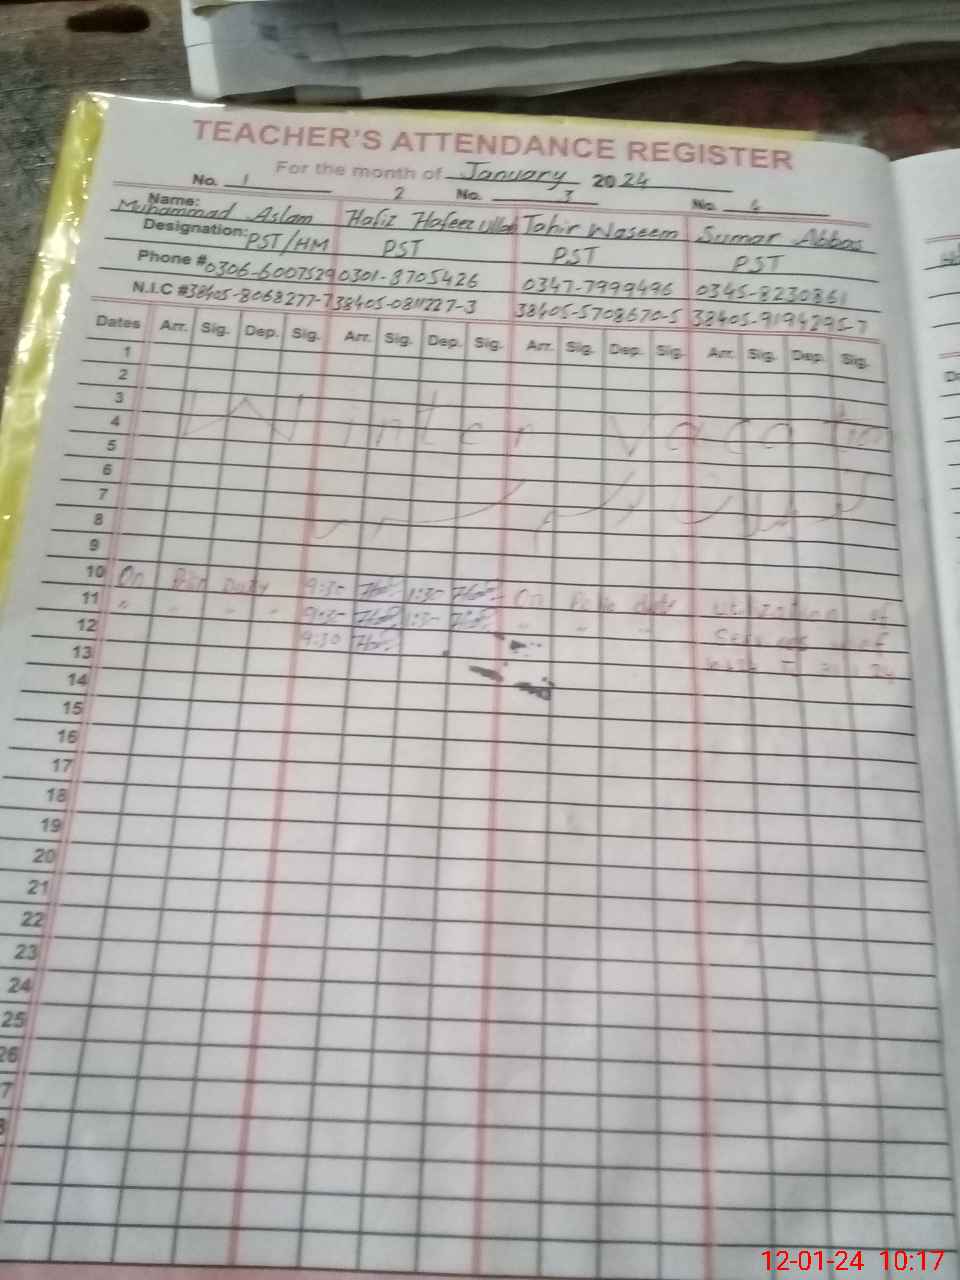 TEACHER'S ATTENDANCE REGISTER
For the month of January 2024
No. 1 2 No. 3 No. 4
Name: Muhammad Aslam Hafiz Hafeez Ullah Tahir Waseem Sumar Abbas
Designation: PST/HM PST PST PST
Phone # 0306-6007529 0301-8705426 0347-7999496 0345-8230861
N.I.C # 38405-8068277-7 38405-0811227-3 38405-5708670-5 38405-9194295-7
Dates Arr. Sig. Dep. Sig. Arr. Sig. Dep. Sig. Arr. Sig. Dep. Sig. Arr. Sig. Dep. Sig.
1
2
3
4 Winter Vacation
5
6
7
8
9
10 On Duty 9:30 1:30 On duty utilization of
11 " " " " 9:30 1:30 " " " of
12 9:30
13
14
15
16
17
18
19
20
21
22
23
24
25
26
7
8
12-01-24 10:17